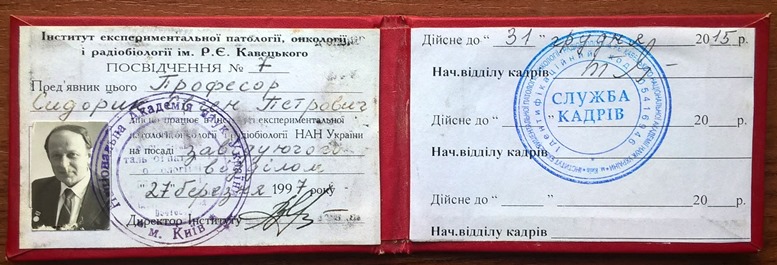 Інститут експериментальної патології, онкології
і радіобіології ім. Р.Є. Кавецького
ПОСВІДЧЕННЯ № 7
Пред'явник цього Професор
Сидорик Петрович
дійсно працює в експериментальної
онкології і радіобіології НАН України
на посаді завідуючого
відділом
"27" березня 1997 року
Директор Інституту
м. Київ
Дійсне до " 31 " грудня 2015 р.
Нач.відділу кадрів
СЛУЖБА
КАДРІВ
Ідентифікаційний код 05416946
Дійсне до " " 20 р.
Нач.відділу кадрів
Дійсне до " " 20 р.
Нач.відділу кадрів